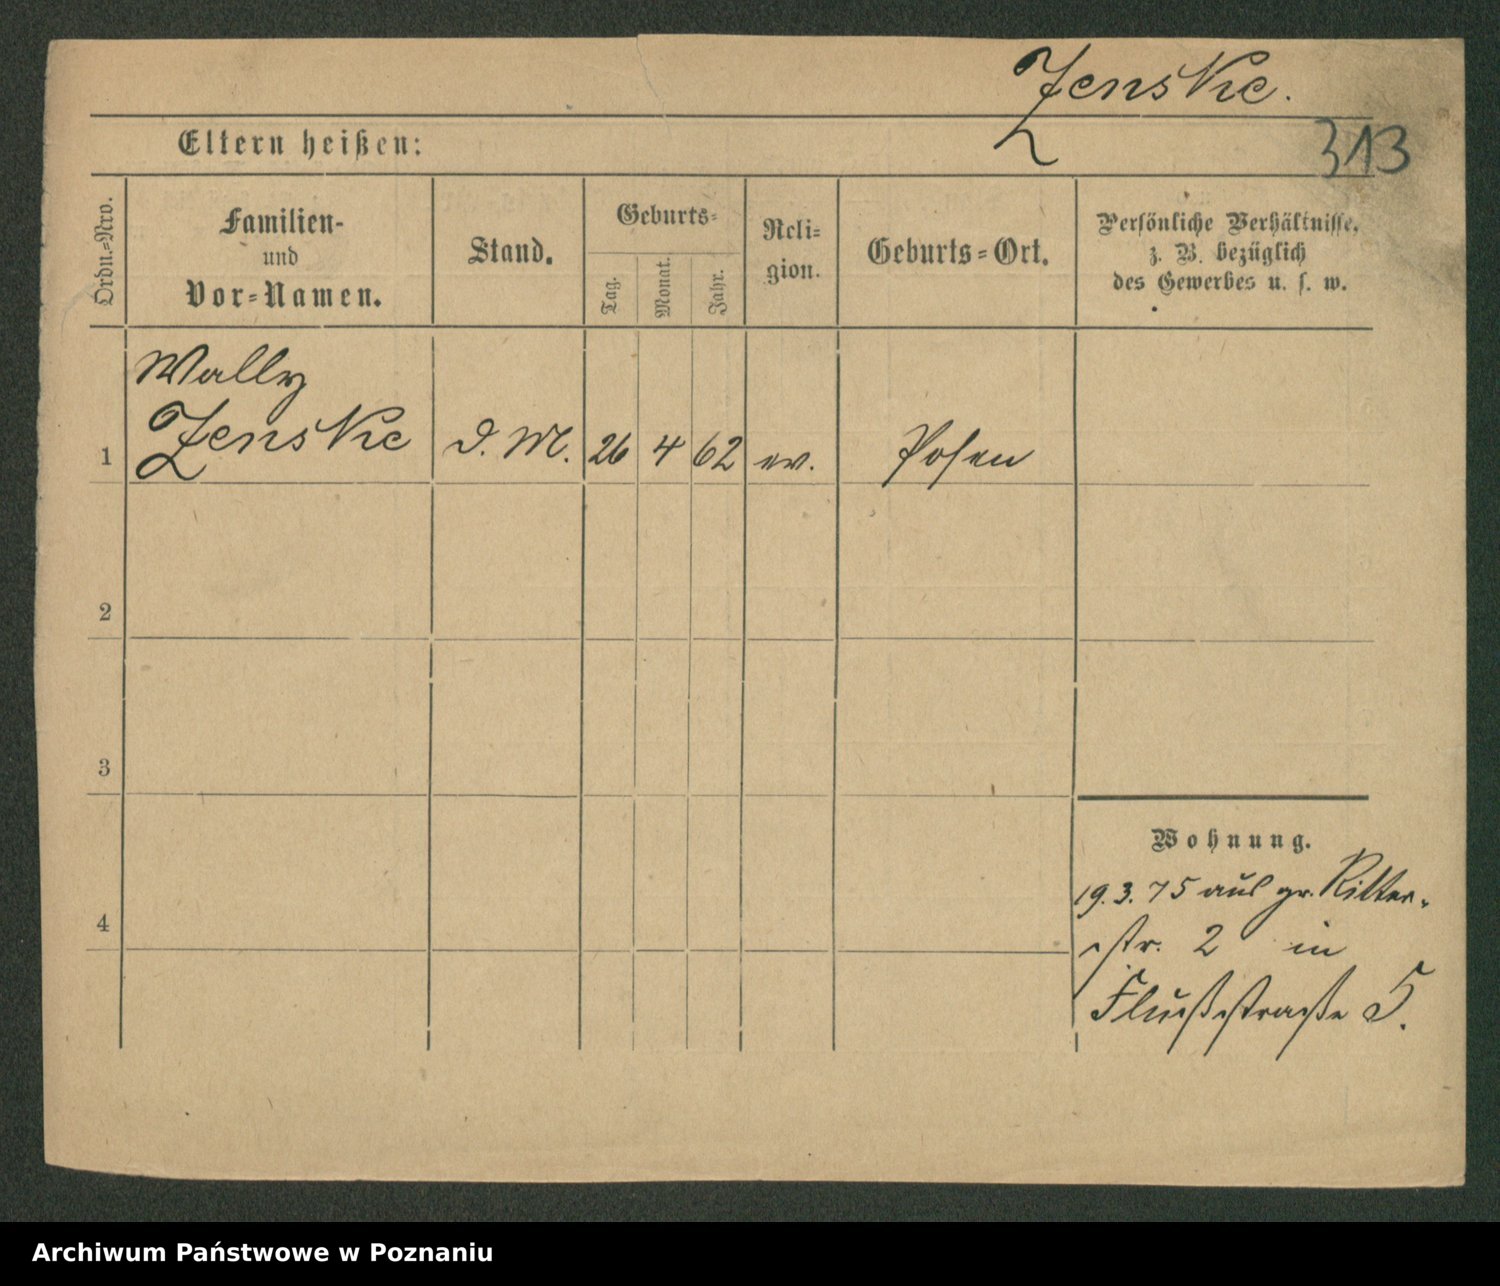 Zenske.
313
Eltern heißen:
Ordn.=Nro.
Familien-
und
Vor=Namen.
Stand.
Geburts=
Tag.
Monat.
Jahr.
Reli=
gion.
Geburts=Ort.
Persönliche Verhältnisse,
z. B. bezüglich
des Gewerbes u. s. w.
Wally
1 Zenske D. M. 26 4 62 ev. Posen
2
3
Wohnung.
19. 3. 75 aus gr. Ritter-
4
str. 2 in
Flußstraße 5.
Archiwum Państwowe w Poznaniu